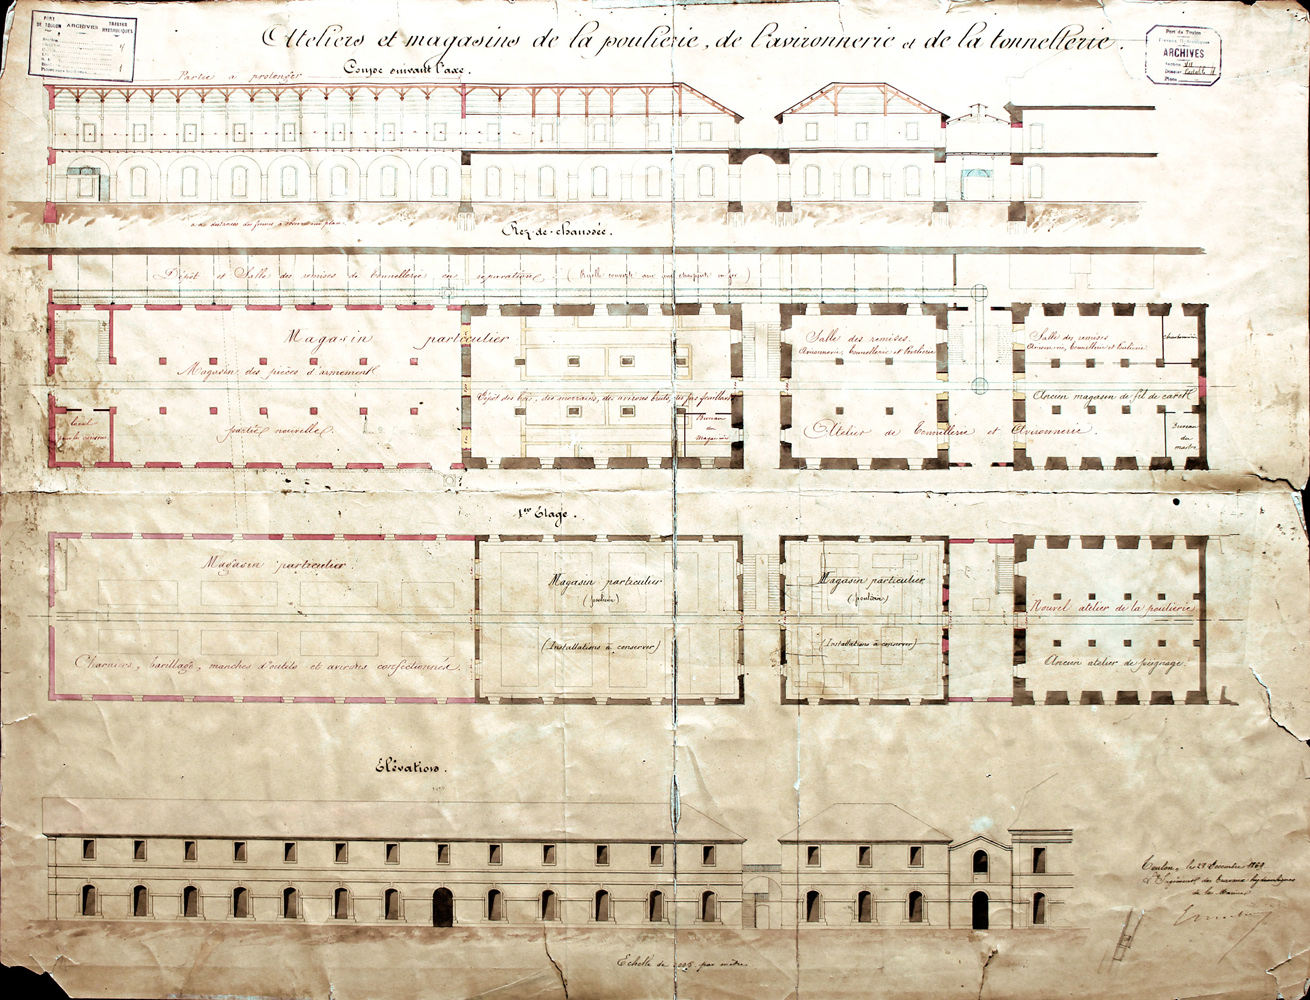 PORT DE TOULON
ARCHIVES
TRAVAUX HYDRAULIQUES
Ateliers et magasins de la poulierie, de l'avironnerie et de la tonnellerie.
Port de Toulon
Travaux Hydrauliques
ARCHIVES
Section VII
Dossier
Pièce
Partie à prolonger
Coupe suivant l'axe.
Rez-de-chaussée.
Dépôt et Salle des remises de tonnellerie en réparation
Magasin particulier
Magasin des pièces d'armement
partie nouvelle.
Local
Dépôt des bois, des merrains, des avirons bruts, des
Bureau du magasin
Salle des remises.
Avironnerie, tonnellerie et Poulierie
Atelier de tonnellerie et Avironnerie.
Salle des remises
Avironnerie, tonnellerie et Poulierie
Ancien magasin de fil de caret
Bureau du maitre
1er Etage.
Magasin particulier.
Charniers, barillage, manches d'outils et avirons confectionnés.
Magasin particulier
(poulierie)
(Installations à conserver)
Magasin particulier
(poulierie)
(Installations à conserver)
Nouvel atelier de la poulierie
Ancien atelier de peignage.
Elévation.
Toulon, le 29 Décembre 1869
L'Ingénieur des travaux hydrauliques
de la Marine,
Echelle de 0.005 par mètre.